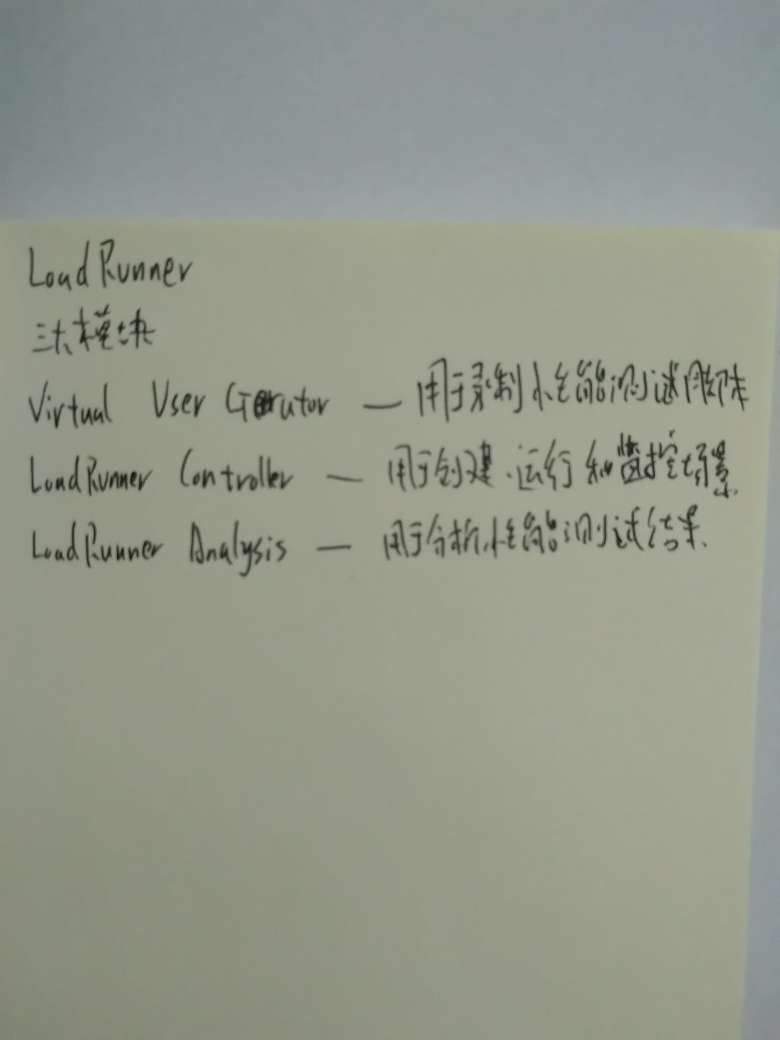 LoadRunner
三大模块
Virtual User — 用于录制性能测试脚本
LoadRunner Controller — 用于创建、运行和监控场景.
LoadRunner Analysis — 用于分析性能测试结果.